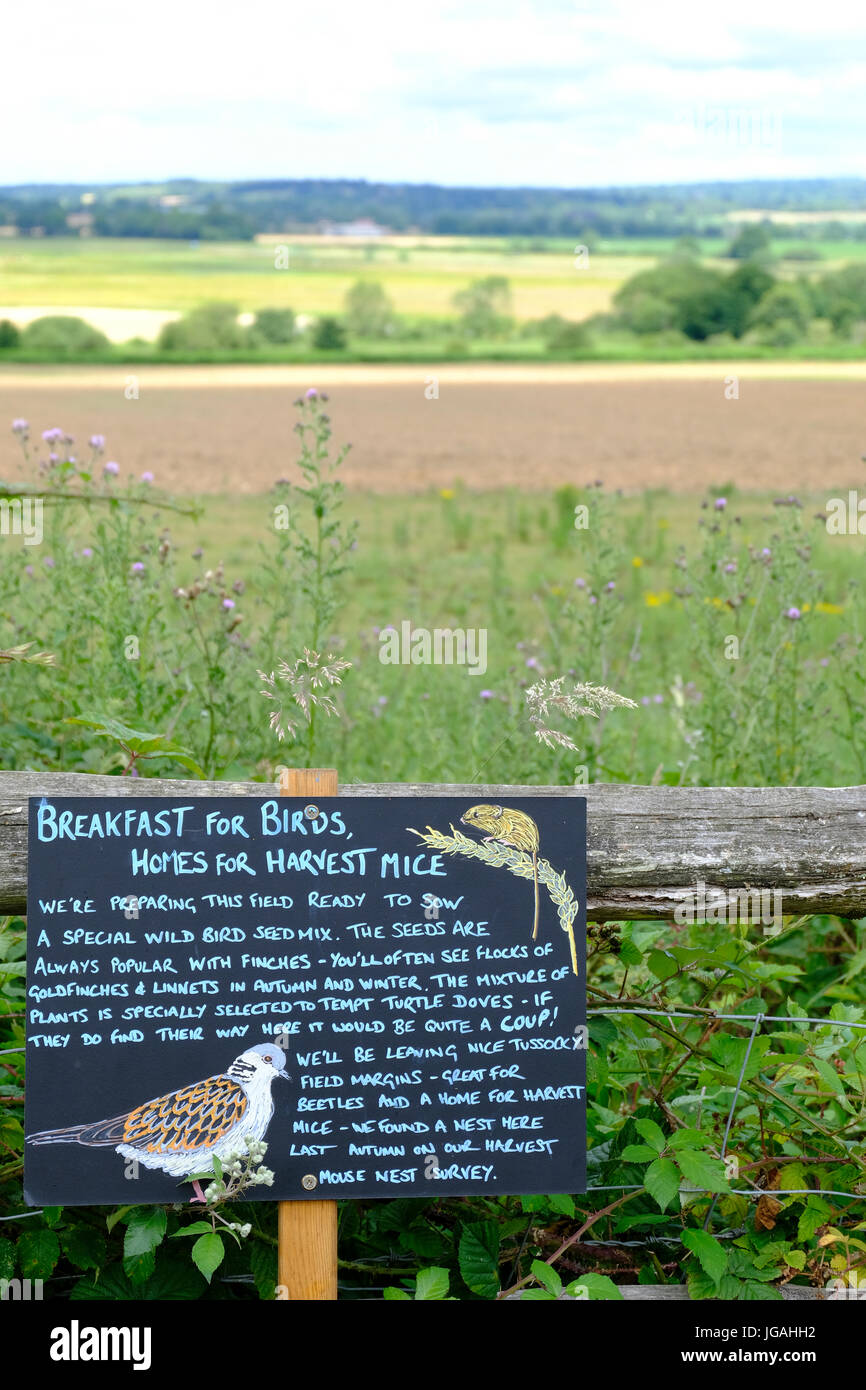 BREAKFAST FOR BIRDS,
HOMES FOR HARVEST MICE
WE'RE PREPARING THIS FIELD READY TO SOW
A SPECIAL WILD BIRD SEED MIX. THE SEEDS ARE
ALWAYS POPULAR WITH FINCHES - YOU'LL OFTEN SEE FLOCKS OF
GOLDFINCHES & LINNETS IN AUTUMN AND WINTER. THE MIXTURE OF
PLANTS IS SPECIALLY SELECTED TO TEMPT TURTLE DOVES - IF
THEY DO FIND THEIR WAY HERE IT WOULD BE QUITE A COUP!
WE'LL BE LEAVING NICE TUSSOCKY
FIELD MARGINS - GREAT FOR
BEETLES AND A HOME FOR HARVEST
MICE - WE FOUND A NEST HERE
LAST AUTUMN ON OUR HARVEST
MOUSE NEST SURVEY.
alamy
a
alamy stock photo
JGAHH2
www.alamy.com